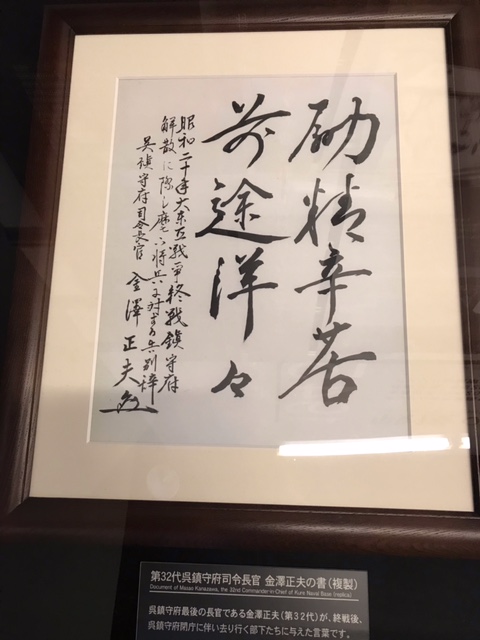 励精辛苦
前途洋々
昭和二十年大東亜戦争終戦鎮守府
解散に際し麾下将兵に対する告別辞
呉鎮守府司令長官 金澤正夫
第32代呉鎮守府司令長官 金澤正夫の書(複製)
Document of Masao Kanazawa, the 32nd Commander-in-Chief of Kure Naval Base (replica)
呉鎮守府最後の長官である金澤正夫(第32代)が、終戦後、
呉鎮守府閉庁に伴い去り行く部下たちに与えた言葉です。